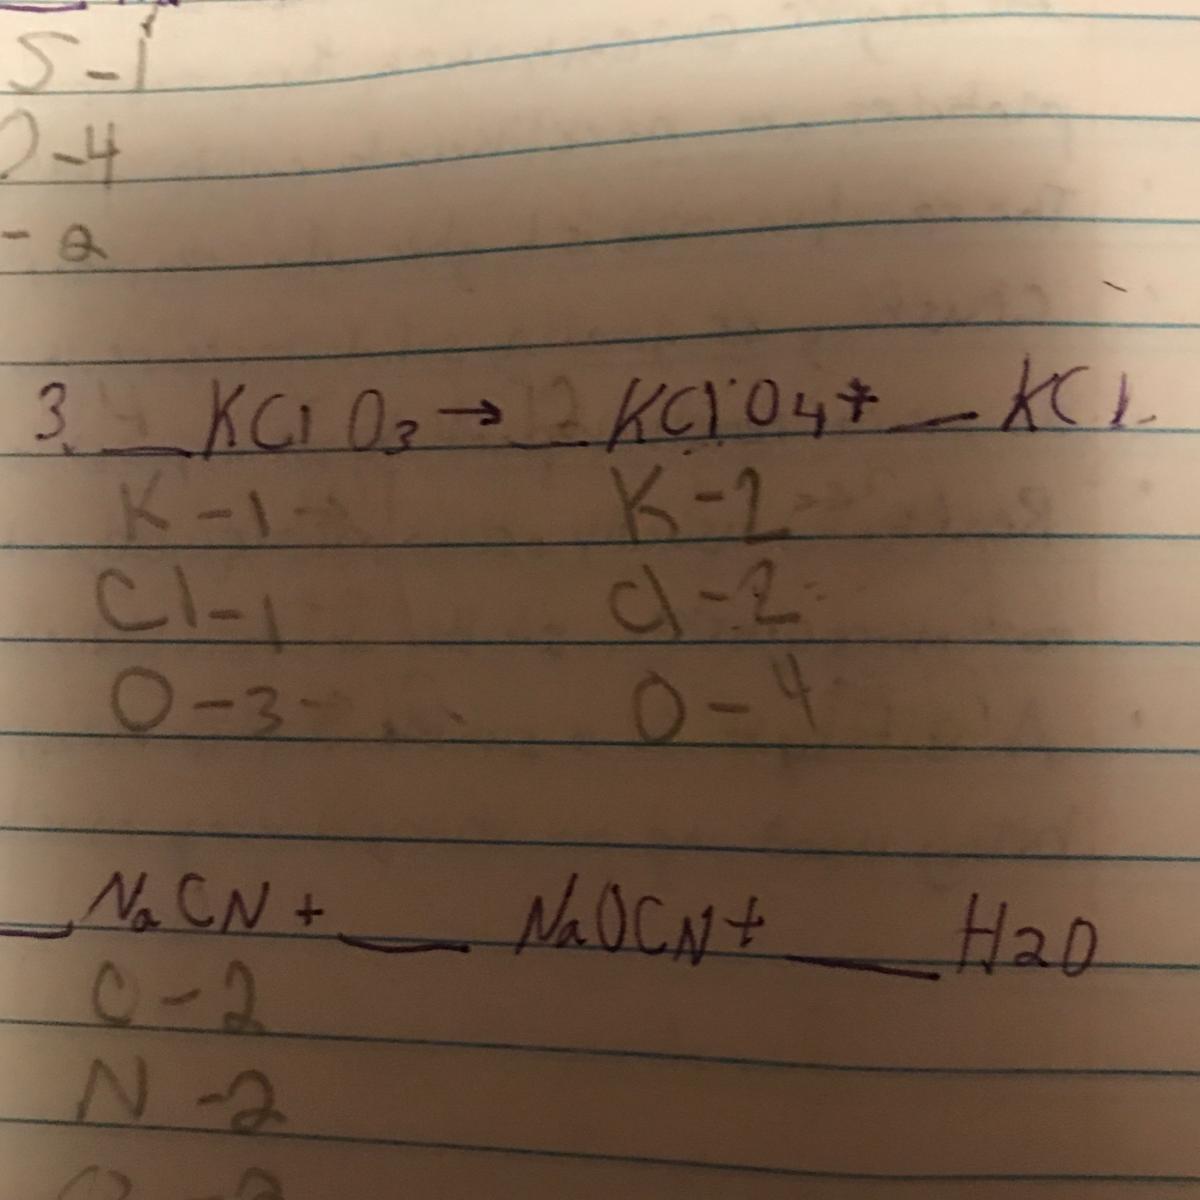 S-1
O-4
- 2
3. __ KClO3 → __ KClO4 + __ KCl.
K-1 K-2
Cl-1 Cl-2
O-3 O-4
__ NaCN + __ NaOCN + __ H2O
C-2
N-2